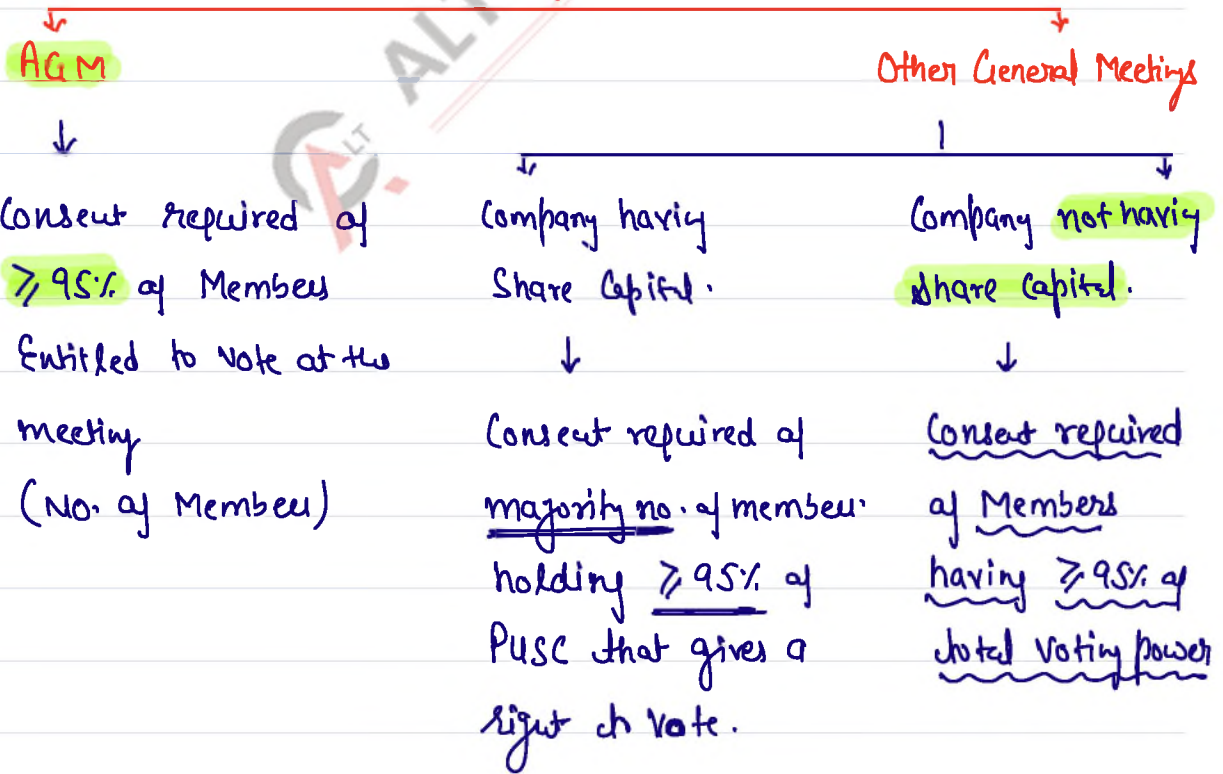 AGM
Other General Meetings
Consent required of
≥ 95% of Members
Entitled to vote at the
meeting
(No. of Members)
Company having
Share Capital.
Consent required of
majority no. of members
holding ≥ 95% of
PUSC that gives a
right to vote.
Company not having
share capital.
Consent required
of Members
having ≥ 95% of
total voting power
ALT
LT